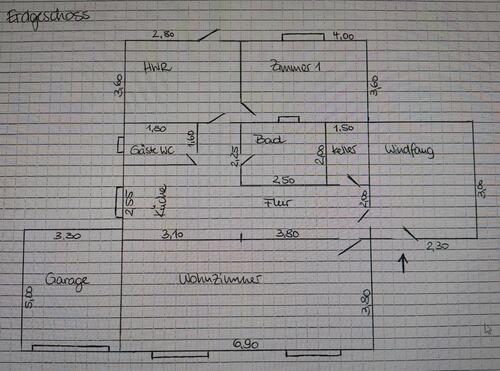 Erdgeschoss
2,80
4,00
HWR
Zimmer 1
3,60
3,60
1,80
1,60
Bad
1,50
Gäste WC
2,25
2,00
Keller
Windfang
2,50
2,55
Küche
Flur
2,00
3,00
3,30
3,10
3,80
2,30
Garage
Wohnzimmer
5,00
3,80
6,90